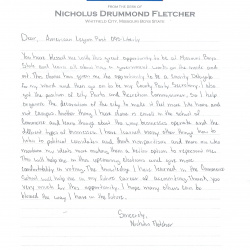 FROM THE DESK OF
NICHOLUS DRUMMOND FLETCHER
WHITFIELD CITY, MISSOURI BOYS STATE
Dear, American Legion Post
You have blessed me with this great opportunity to be at Missouri Boys
State and learn all about how a government works on the inside and
out. This chance has given me the opportunity to be a County Delegate
for my ward and then go on to be my County Party Secretary. I also
got the position of City Parks and Recreation Commissioner. So I help
organize the decoration of the city to make it feel more like home and
not cougars. Another thing I have done is enroll in the school of
Commerce and learn things about the way businesses operate and the
different types of businesses. I have learned many other things too
listen to political candidates and their perspectives and more on who
matches my ideals more making them a better option to represent me.
This will help me in the upcoming elections and give more
comfortability to voting. The knowledge I have learned in the Commerce
School will help me in my future career of accounting. Thank you
very much for this opportunity. I hope many others can be
blessed the way I have in the future.
Sincerely,
Nicholus Fletcher